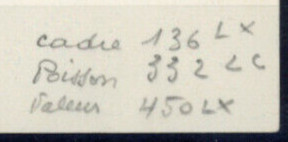 cadre 136 LX
Poisson 332 LC
Valeur 450 LX